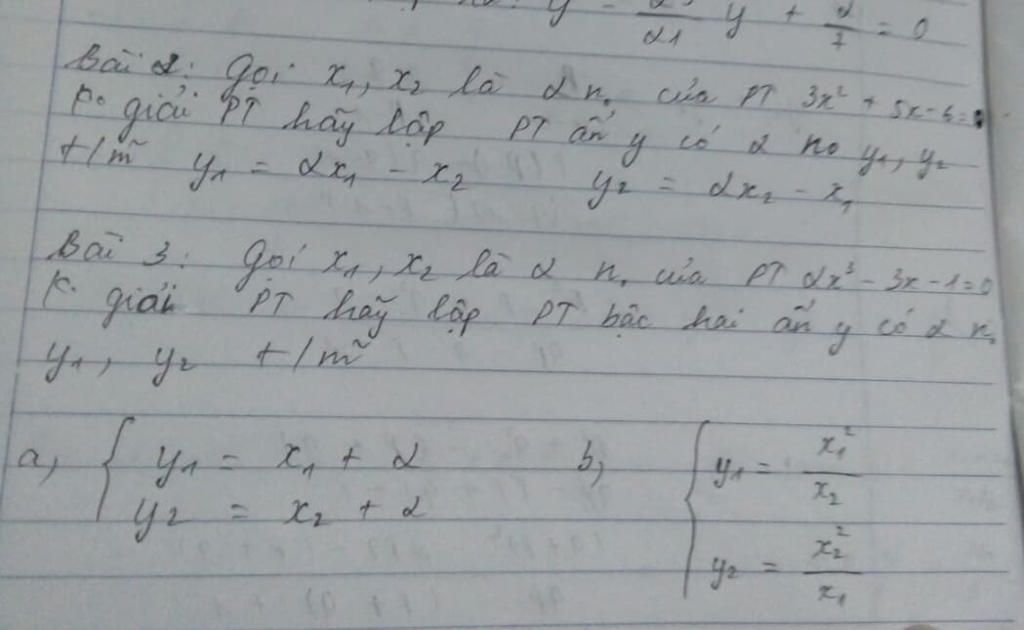 y - y + 2/7 = 0
Bài 2: Gọi x₁, x₂ là 2 n₀ của PT 3x² + 5x - 6 = 0
K₀ giải PT hãy lập PT ẩn y có 2 n₀ y₁, y₂
t/m y₁ = 2x₁ - x₂ y₂ = 2x₂ - x₁
Bài 3: Gọi x₁, x₂ là 2 n₀ của PT 2x² - 3x - 1 = 0
K₀ giải PT hãy lập PT bậc hai ẩn y có 2 n₀
y₁, y₂ t/m
a, { y₁ = x₁ + 2
y₂ = x₂ + 2
b, { y₁ = x₁²/x₂
y₂ = x₂²/x₁